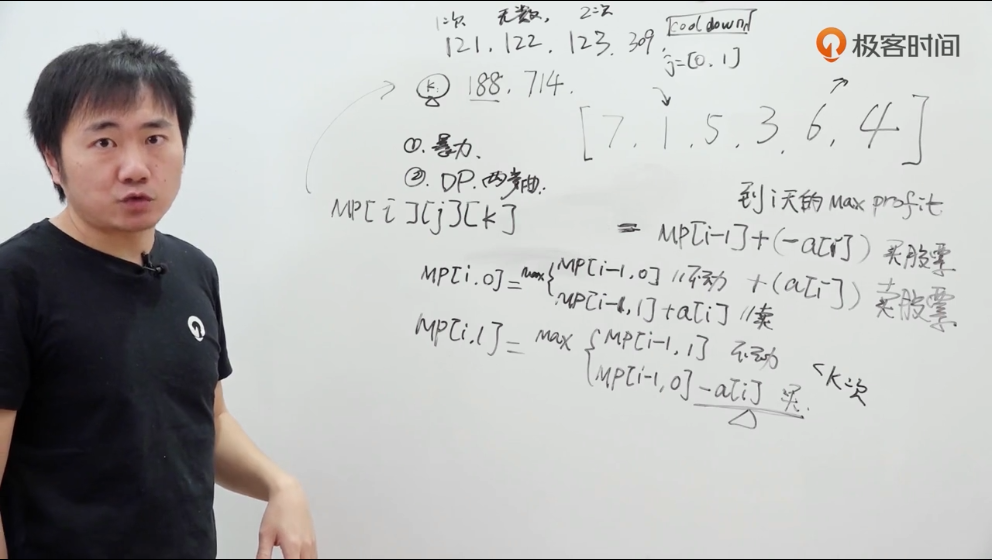 1次 无数, 2次
121. 122. 123. 309. cooldown
j=[0,1]
极客时间
K: 188. 714.
[7, 1, 5, 3, 6, 4]
①.暴力.
②.DP.
MP[i][j][k]
到i天的max profit
= MP[i-1]+(-a[i]) 买股票
+(a[i]) 卖股票
MP[i,0]=max{MP[i-1,0] //不动
MP[i-1,1]+a[i] //卖
MP[i,1]=max{MP[i-1,1] 不动
MP[i-1,0]-a[i] 买.
<K次